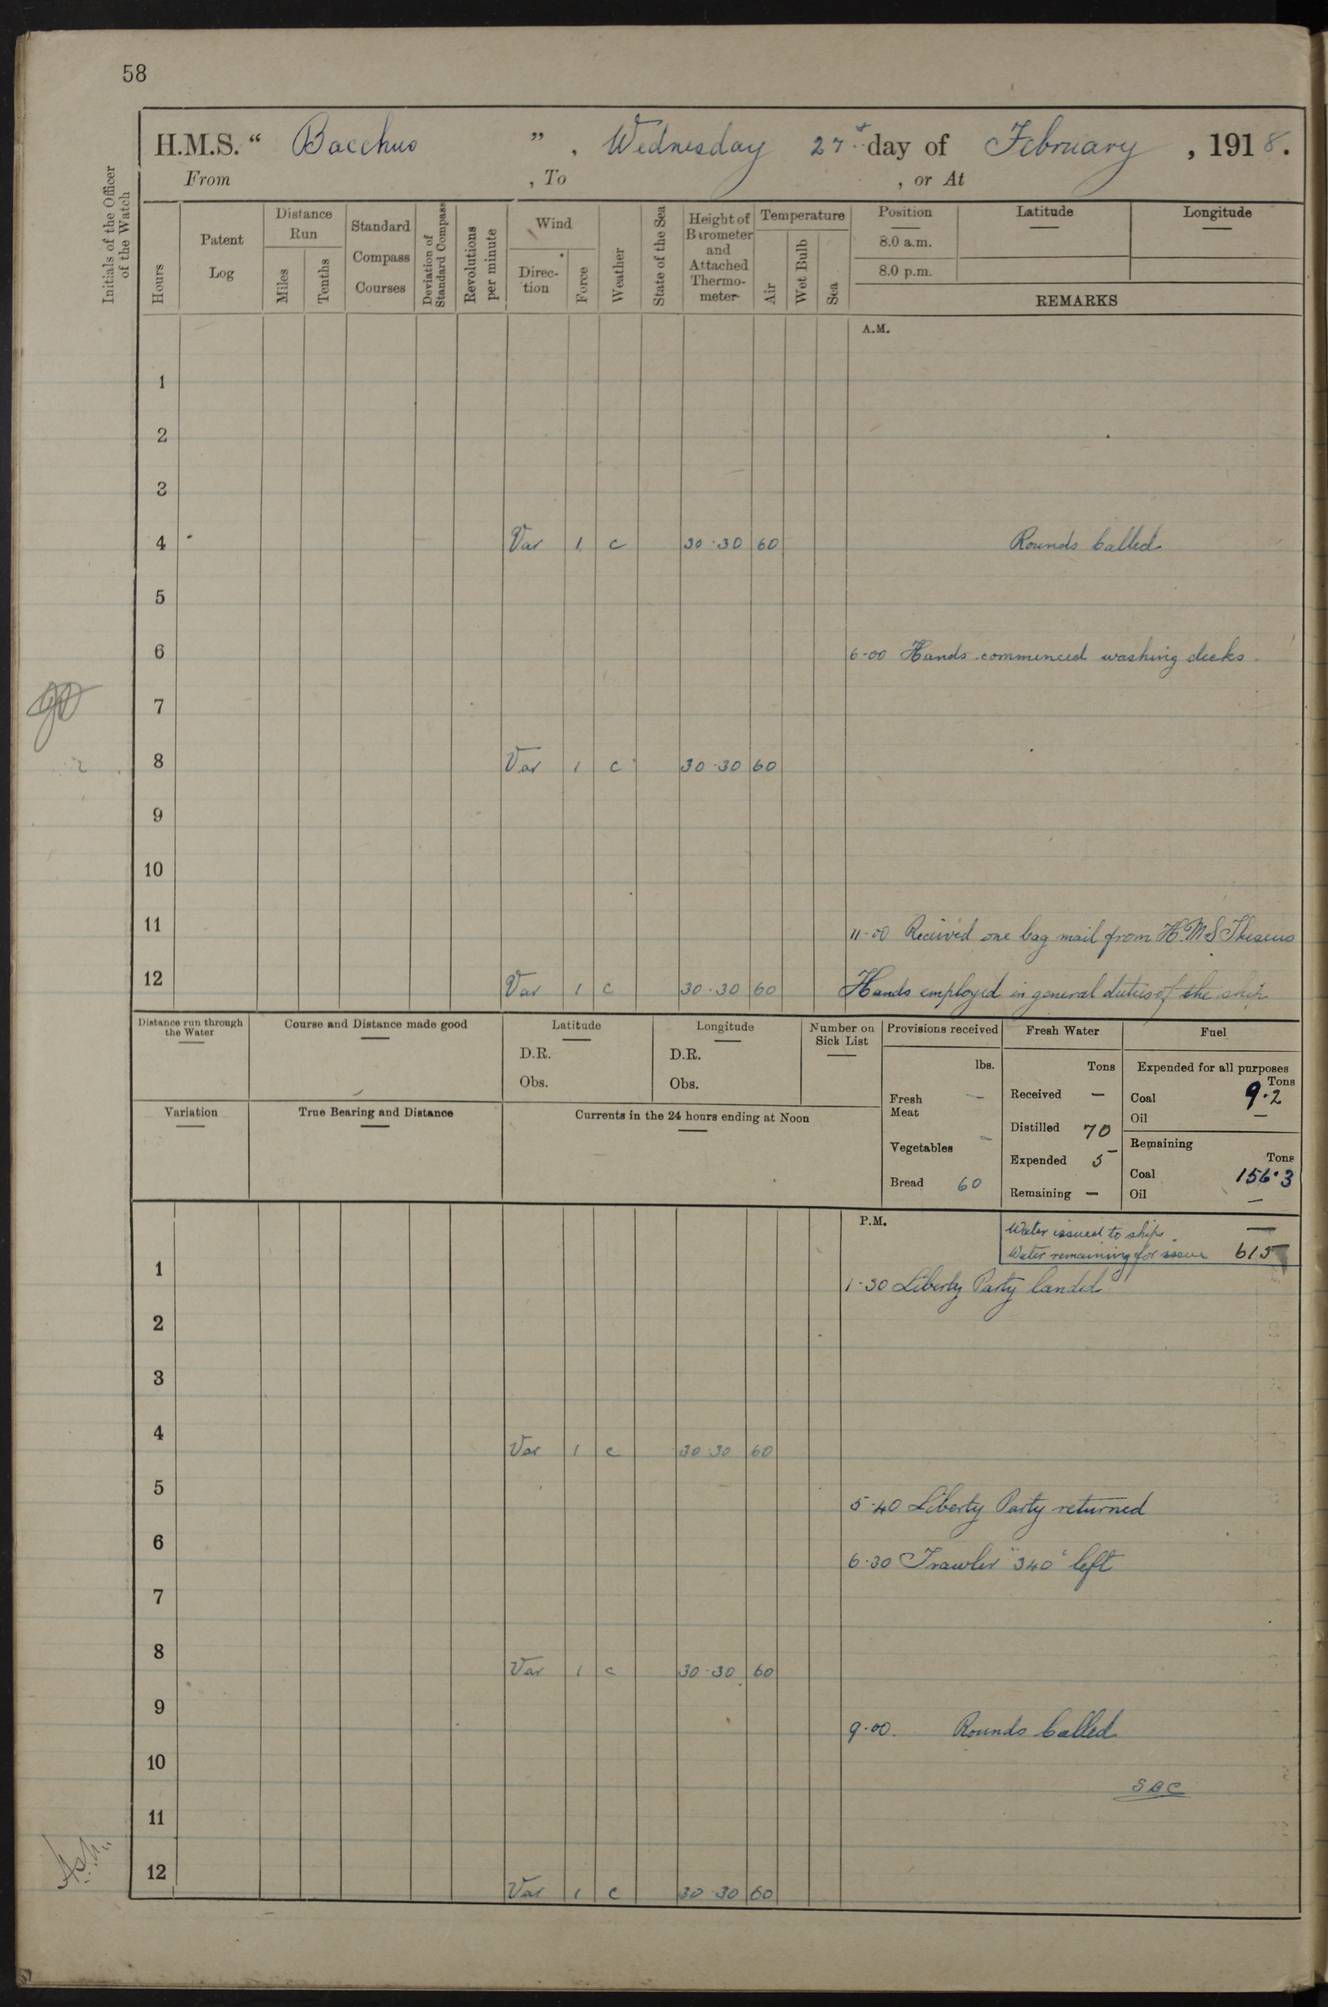 58
H.M.S. “ Bacchus ” , Wednesday 27th day of February , 1918.
From , To , or At
Initials of the Officer of the Watch
Hours
Patent Log
Distance Run
Miles
Tenths
Standard Compass Courses
Deviation of Standard Compass
Revolutions per minute
Wind
Direc-tion
Force
Weather
State of the Sea
Height of Barometer and Attached Thermo-meter
Temperature
Air
Wet Bulb
Sea
Position
8.0 a.m.
8.0 p.m.
Latitude
Longitude
REMARKS
A.M.
1
2
3
4 Var 1 c 30·30 60 Rounds Called
5
6 6·00 Hands commenced washing decks
7
8 Var 1 c 30·30 60
9
10
11 11·00 Received one bag mail from H.M.S Theseus
12 Var 1 c 30·30 60 Hands employed in general duties of the ship
Distance run through the Water
Course and Distance made good
Latitude
D.R.
Obs.
Longitude
D.R.
Obs.
Number on Sick List
Provisions received
lbs.
Fresh Meat –
Vegetables –
Bread 60
Fresh Water
Tons
Received –
Distilled 70
Expended 5
Remaining –
Fuel
Expended for all purposes
Tons
Coal 9·2
Oil –
Remaining
Tons
Coal 156·3
Oil –
Variation
True Bearing and Distance
Currents in the 24 hours ending at Noon
P.M.
Water issued to ships –
Water remaining for issue 615
1 1·30 Liberty Party landed
2
3
4 Var 1 c 30·30 60
5 5·40 Liberty Party returned
6 6·30 Trawler "340" left
7
8 Var 1 c 30·30 60
9 9·00. Rounds Called
10 SBC
11
12 Var 1 c 30·30 60